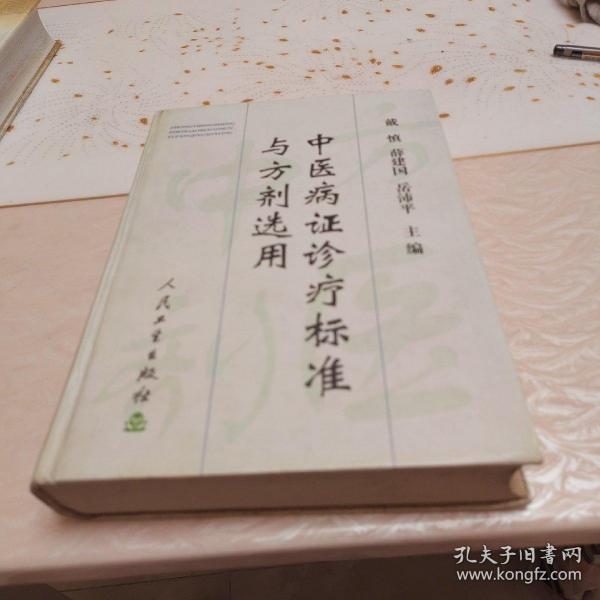 戴慎 薛建国 岳沛平 主编
中医病证诊疗标准
与方剂选用
人民卫生出版社
孔夫子旧书网
www.kongfz.com